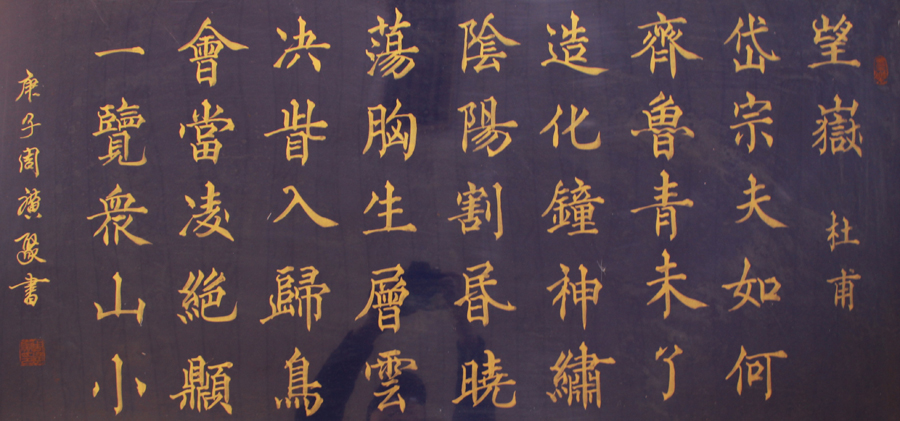 望嶽 杜甫
岱宗夫如何
齊魯青未了
造化鐘神繡
陰陽割昬曉
蕩胸生層雲
决眥入歸鳥
會當凌絕𩕢
一覽衆山小
庚子周書